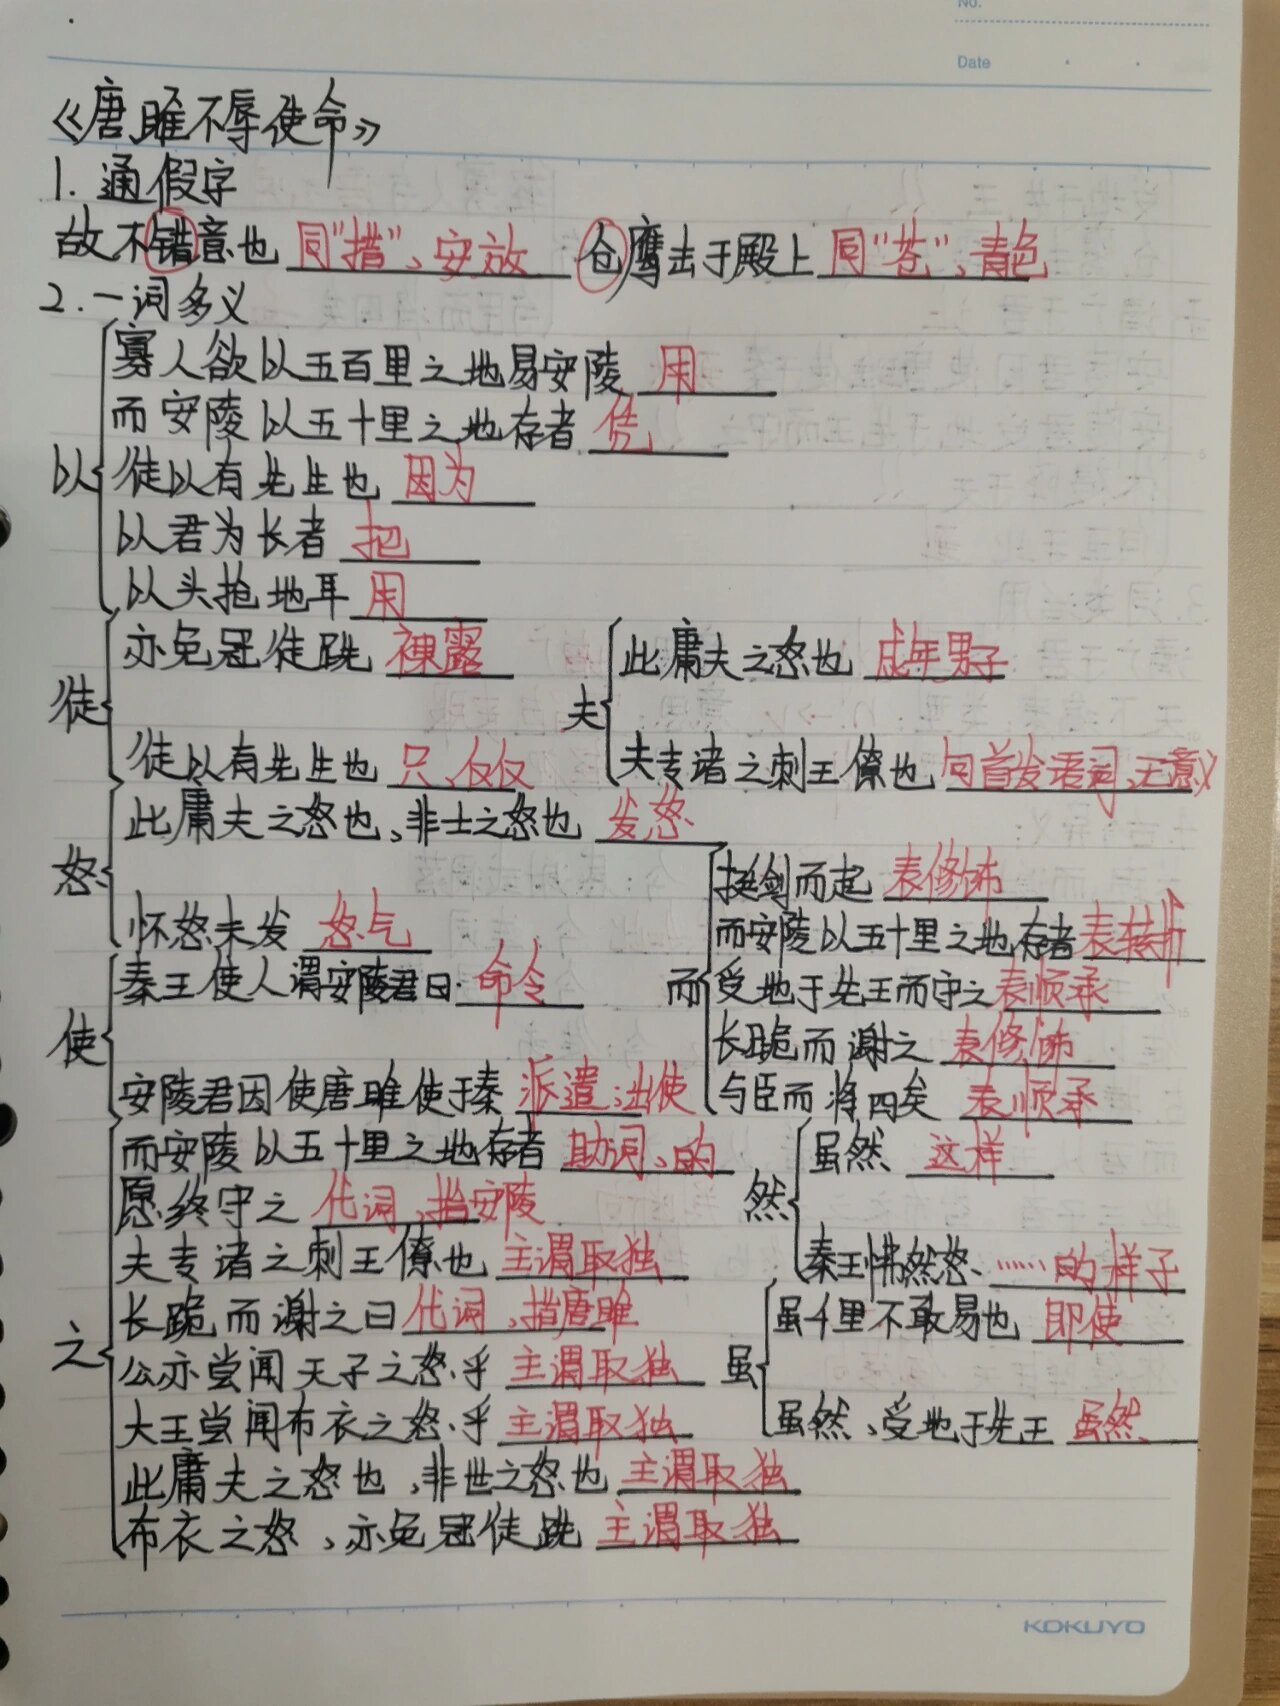 No.
Date
《唐雎不辱使命》
1. 通假字
故不错意也 同"措"、安放 仓鹰击于殿上 同"苍"、青色
2. 一词多义
以
寡人欲以五百里之地易安陵 用
而安陵以五十里之地存者 凭
徒以有先生也 因为
以君为长者 把
以头抢地耳 用
徒
亦免冠徒跣 裸露
徒以有先生也 只、仅仅
夫
此庸夫之怒也 成年男子
夫专诸之刺王僚也 句首发语词、无意义
怒
此庸夫之怒也、非士之怒也 发怒
怀怒未发 怒气
使
秦王使人谓安陵君曰 命令
安陵君因使唐雎使于秦 派遣;出使
而
挺剑而起 表修饰
而安陵以五十里之地存者 表转折
受地于先王而守之 表顺承
长跪而谢之 表修饰
与臣而将四矣 表顺承
之
而安陵以五十里之地存者 助词、的
愿终守之 代词、指安陵
夫专诸之刺王僚也 主谓取独
长跪而谢之曰 代词、指唐雎
公亦尝闻天子之怒乎 主谓取独
大王尝闻布衣之怒乎 主谓取独
此庸夫之怒也,非世之怒也 主谓取独
布衣之怒、亦免冠徒跣 主谓取独
然
虽然 这样
秦王怫然怒 ……的样子
虽
虽千里不敢易也 即使
虽然、受地于先王 虽然
KOKUYO